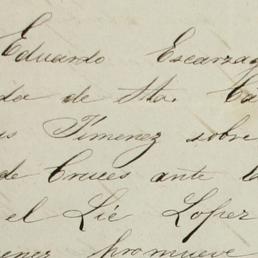 Eduardo Escarzag
da de Sta. Ca
s Jimenez sobre
de Cruces ante l
el Lic Lopez
menez Promueve